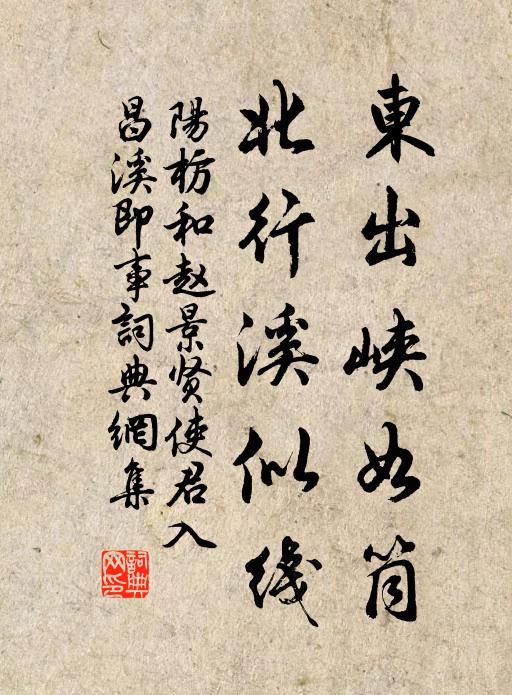 東出峽如筒
北行溪似綫
陽枋和赵景贤使君入
昌溪即事詞典網集
詞典网印